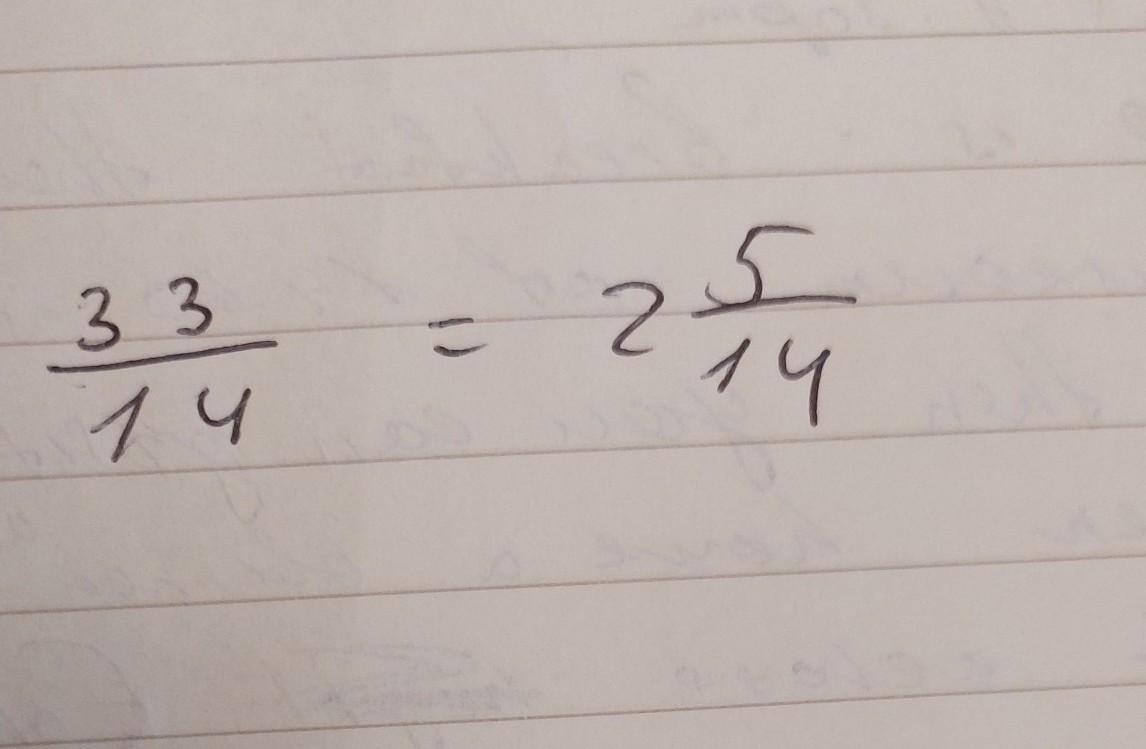 33/14 = 2 5/14